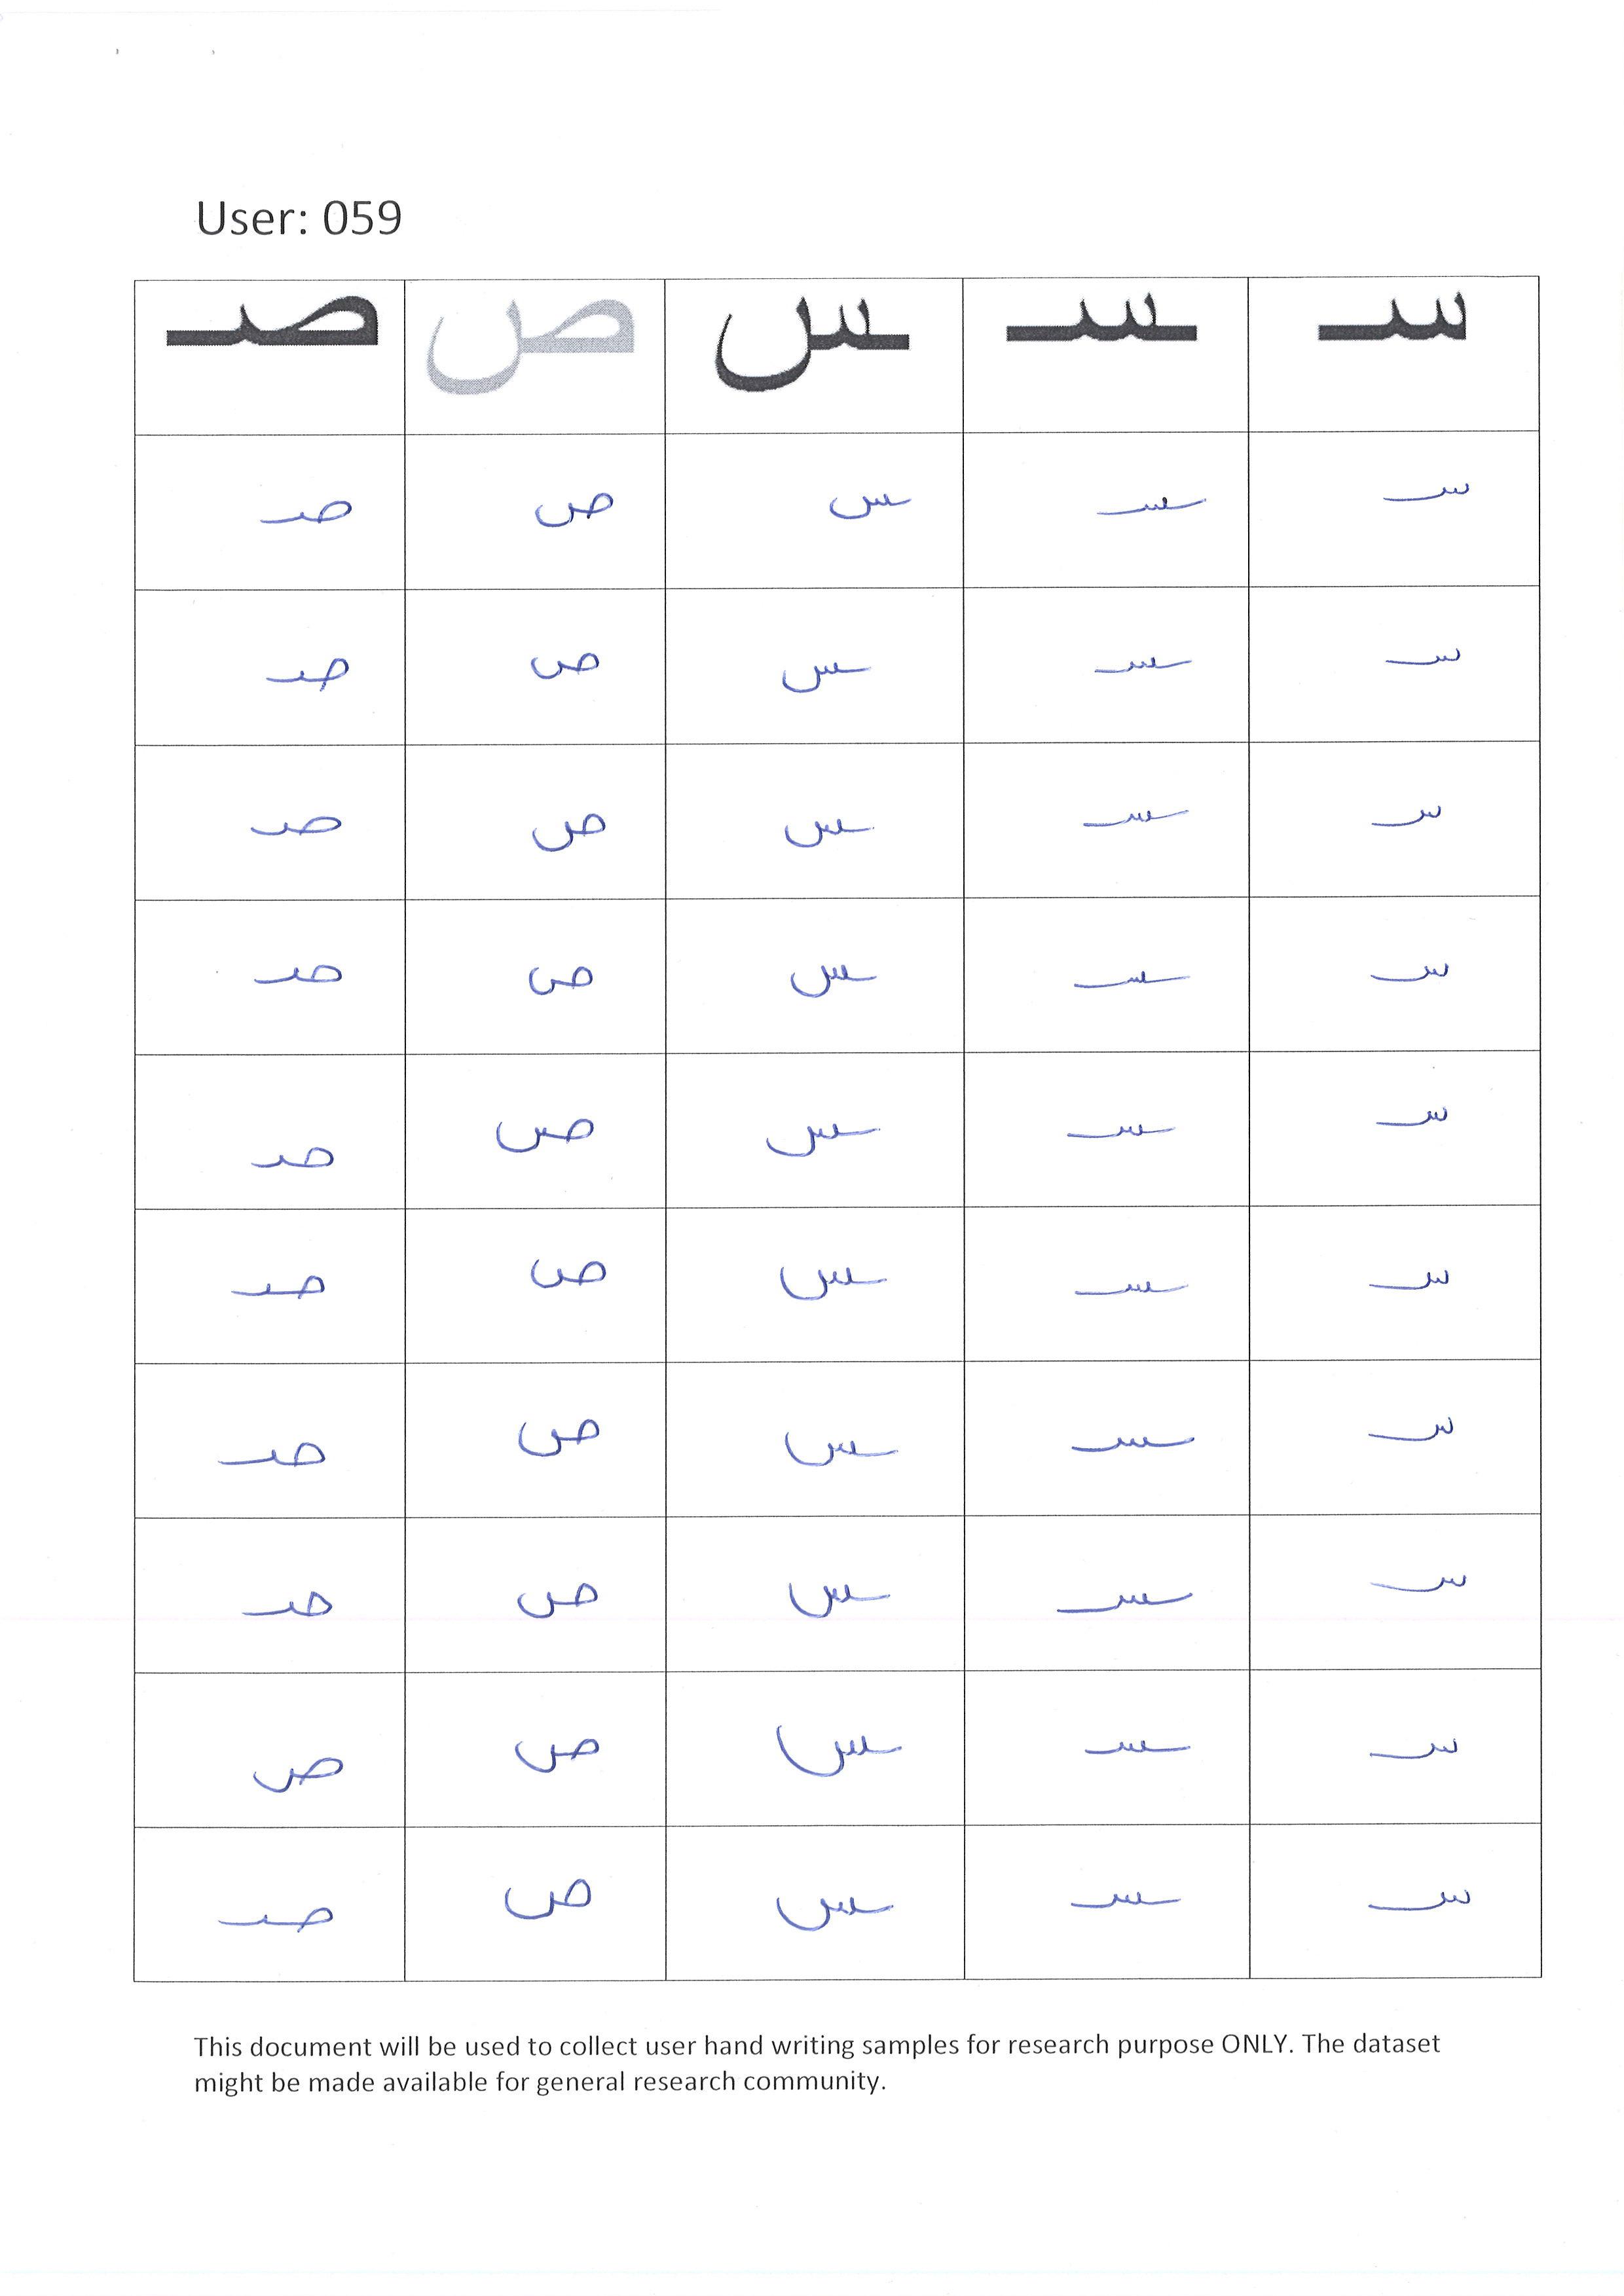 User: 059
سـ ـسـ ـس ص صـ
سـ ـسـ ـس ص صـ
سـ ـسـ ـس ص صـ
سـ ـسـ ـس ص صـ
سـ ـسـ ـس ص صـ
سـ ـسـ ـس ص صـ
سـ ـسـ ـس ص صـ
سـ ـسـ ـس ص صـ
سـ ـسـ ـس ص صـ
سـ ـسـ ـس ص ص
سـ ـسـ ـس ص صـ
This document will be used to collect user hand writing samples for research purpose ONLY. The dataset
might be made available for general research community.